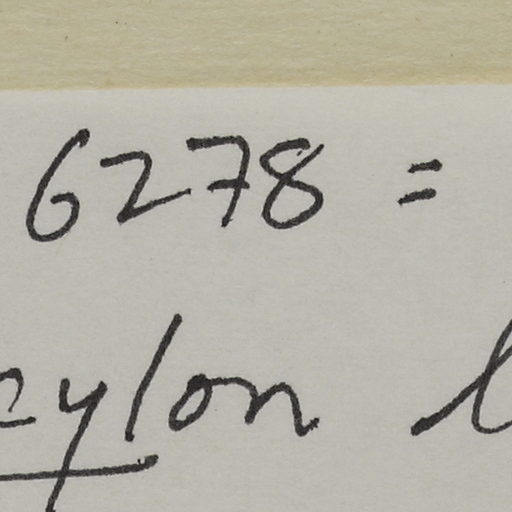 6278 =
eylon